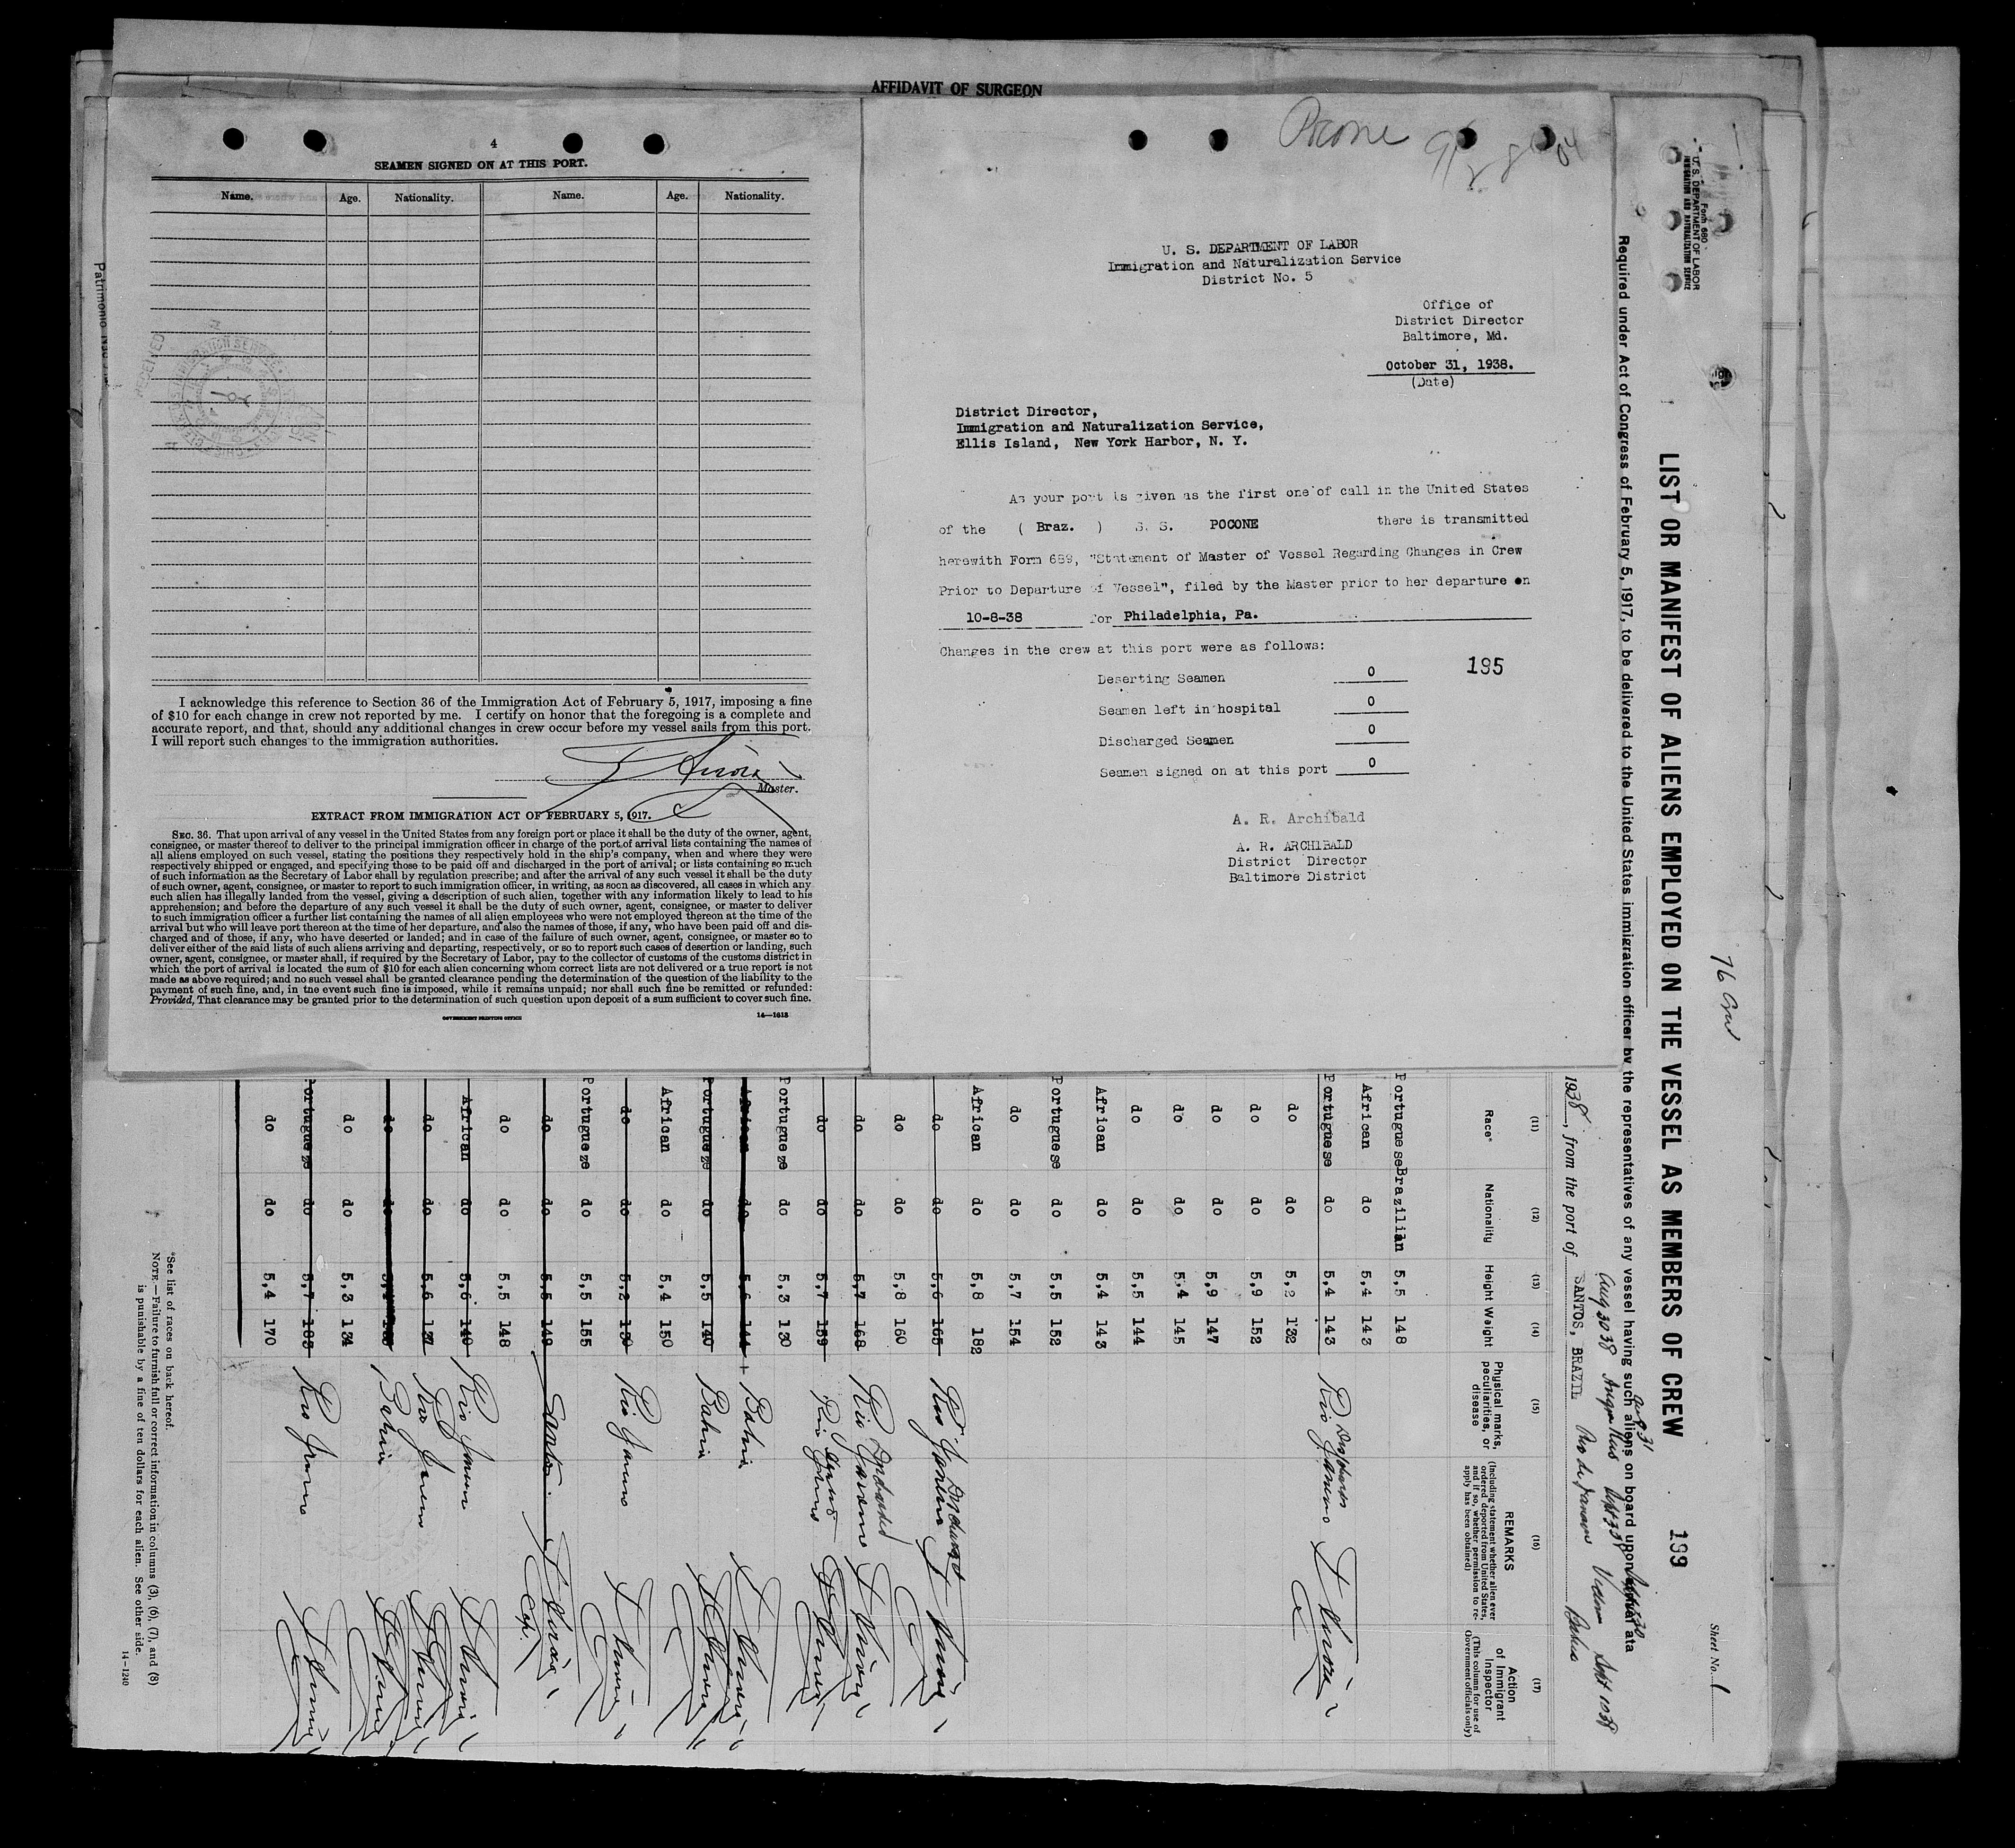 AFFIDAVIT OF SURGEON
4
SEAMEN SIGNED ON AT THIS PORT.
Name. Age. Nationality. Name. Age. Nationality.
I acknowledge this reference to Section 36 of the Immigration Act of February 5, 1917, imposing a fine
of $10 for each change in crew not reported by me. I certify on honor that the foregoing is a complete and
accurate report, and that, should any additional changes in crew occur before my vessel sails from this port.
I will report such changes to the immigration authorities.
Master.
EXTRACT FROM IMMIGRATION ACT OF FEBRUARY 5, 1917.
SEC. 36. That upon arrival of any vessel in the United States from any foreign port or place it shall be the duty of the owner, agent,
consignee, or master thereof to deliver to the principal immigration officer in charge of the port of arrival lists containing the names of
all aliens employed on such vessel, stating the positions they respectively hold in the ship's company, when and where they were
respectively shipped or engaged, and specifying those to be paid off and discharged in the port of arrival; or lists containing so much
of such information as the Secretary of Labor shall by regulation prescribe; and after the arrival of any such vessel it shall be the duty
of such owner, agent, consignee, or master to report to such immigration officer, in writing, as soon as discovered, all cases in which any
such alien has illegally landed from the vessel, giving a description of such alien, together with any information likely to lead to his
apprehension; and before the departure of any such vessel it shall be the duty of such owner, agent, consignee, or master to deliver
to such immigration officer a further list containing the names of all alien employees who were not employed thereon at the time of the
arrival but who will leave port thereon at the time of her departure, and also the names of those, if any, who have been paid off and dis-
charged and of those, if any, who have deserted or landed; and in case of the failure of such owner, agent, consignee, or master so to
deliver either of the said lists of such aliens arriving and departing, respectively, or so to report such cases of desertion or landing, such
owner, agent, consignee, or master shall, if required by the Secretary of Labor, pay to the collector of customs of the customs district in
which the port of arrival is located the sum of $10 for each alien concerning whom correct lists are not delivered or a true report is not
made as above required; and no such vessel shall be granted clearance pending the determination of the question of the liability to the
payment of such fine, and, in tne event such fine is imposed, while it remains unpaid; nor shall such fine be remitted or refunded:
Provided, That clearance may be granted prior to the determination of such question upon deposit of a sum sufficient to cover such fine.
GOVERNMENT PRINTING OFFICE 14—1613
Pocone
U. S. DEPARTMENT OF LABOR
Immigration and Naturalization Service
District No. 5
Office of
District Director
Baltimore, Md.
October 31, 1938.
(Date)
District Director,
Immigration and Naturalization Service,
Ellis Island, New York Harbor, N. Y.
As your port is given as the first one of call in the United States
of the ( Braz. ) S. S. POCONE there is transmitted
herewith Form 689, "Statement of Master of Vessel Regarding Changes in Crew
Prior to Departure of Vessel", filed by the Master prior to her departure on
10-8-38 for Philadelphia, Pa.
Changes in the crew at this port were as follows:
Deserting Seamen 0 195
Seamen left in hospital 0
Discharged Seamen 0
Seamen signed on at this port 0
A. R. Archibald
A. R. ARCHIBALD
District Director
Baltimore District
Form 680
U. S. DEPARTMENT OF LABOR
IMMIGRATION AND NATURALIZATION SERVICE
Sheet No. 1
76 Crew
LIST OR MANIFEST OF ALIENS EMPLOYED ON THE VESSEL AS MEMBERS OF CREW 199
Required under Act of Congress of February 5, 1917, to be delivered to the United States immigration officer by the representatives of any vessel having such aliens on board upon arrival at a
Aug 31
Aug 30 38 Angra Reis
1938, from the port of SANTOS, BRAZIL Rio de Janeiro Victoria Sept 10 38 Bahia
(11) (12) (13) (14) (15) (16) (17)
Race* Nationality Height Weight Physical marks, peculiarities, or disease REMARKS (Including statement whether alien ever ordered deported from United States, and if so, whether permission to reapply has been obtained) Action of Immigrant Inspector (This column for use of Government officials only)
Portuguese Brazilian 5,5 148
African do 5,4 143
Portuguese do 5,4 143 Rio Janeiro
do do 5,2 132
do do 5,9 152
do do 5,9 147
do do 5,4 145
do do 5,5 144
African do 5,4 143
Portuguese do 5,5 152
do do 5,7 154
African do 5,8 182
do do 5,6 165 Rio Janeiro
do do 5,8 160
do do 5,7 168 Rio Janeiro
do do 5,7 159 Rio Janeiro
Portugueze do 5,3 130
African do 5,6 144 Bahia
Portugueze do 5,5 140 Bahia
African do 5,4 150
do do 5,2 130 Rio Janeiro
Portugueze do 5,5 155
do do 5,5 149 Santos
do do 5,5 148
African do 5,6 149 Rio Janeiro
do do 5,6 137 Rio Janeiro
do do Bahia
do do 5,3 134
Portugueze do 5,7 183 Rio Janeiro
do do 5,4 170
*See list of races on back hereof.
NOTE.—Failure to furnish full or correct information in columns (3), (6), (7), and (8)
is punishable by a fine of ten dollars for each alien. See other side.
14—1240